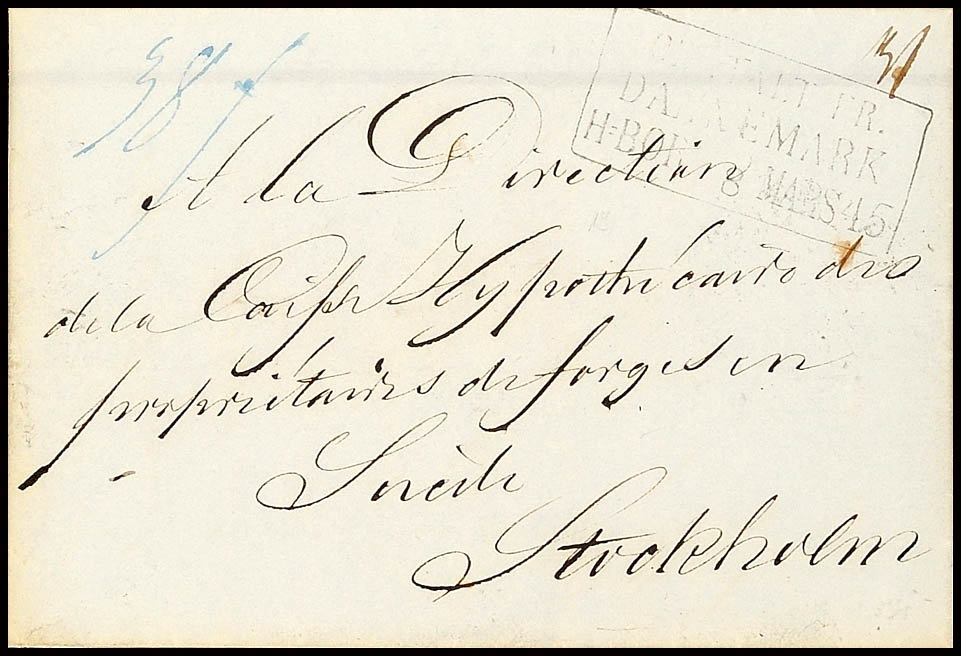 FR.
DANNEMARK
8 MARS 45
A la Direction
de la Caisse Hypothécaire des
propriétaires de forges en
Suède
Stockholm